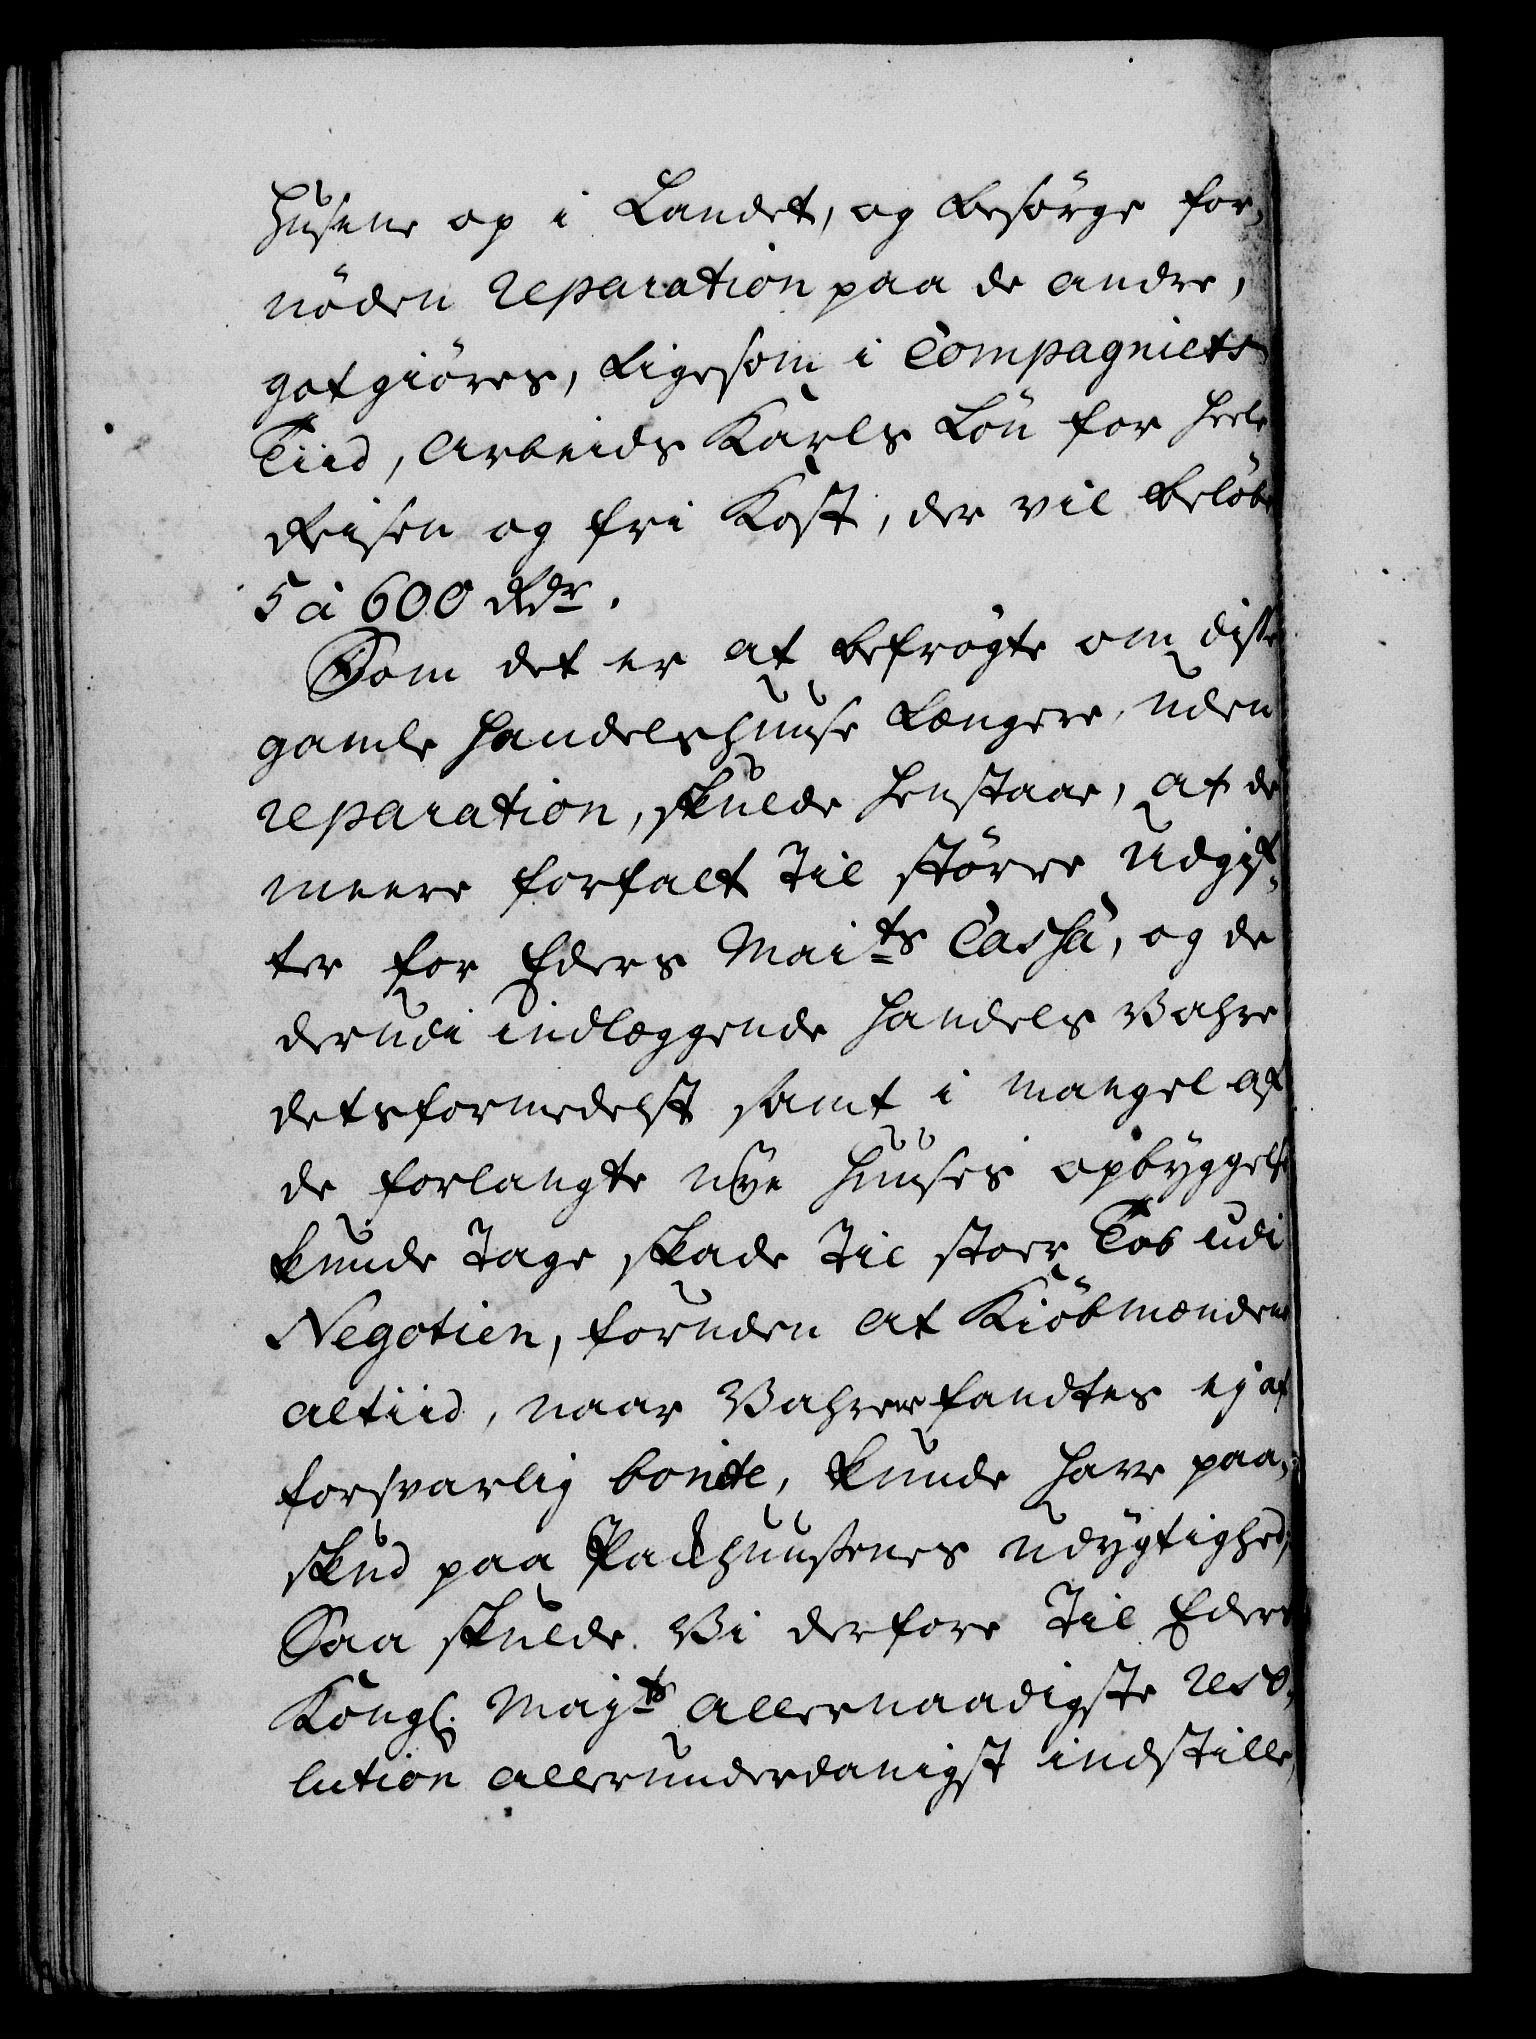 Husene op i Landet, og besörge for-
nöden reparation paa de andre,
gotgiöres, ligesom i Compagniets
Tiid, Arbeids Karls Lön for heele
Reisen og fri Kost, der vil belöbe
5 à 600 Rdr.
Som det er at befrögte om disse
gamle Handelshuuse længere, uden
reparation, skulde henstaae, at de
meere forfalt til större Udgif-
ter for Eders Maits Cassa, og de
derudi indlæggende Handels Vahre
detsformedelst samt i mangel af
de forlangte nye Huuses opbyggelse
kunde tage skade til stoer Tab udi
Negotien, foruden at Kiöbmændene
altiid, naar Vahrene fandtes ej af
forsvarlig bonité, kunde have paa-
skud paa Pakhuusenes udygtighed;
Saa skulde Vi derfore til Eders
Kongl. Majts allernaadigste reso-
lution allerunderdanigst indstille,